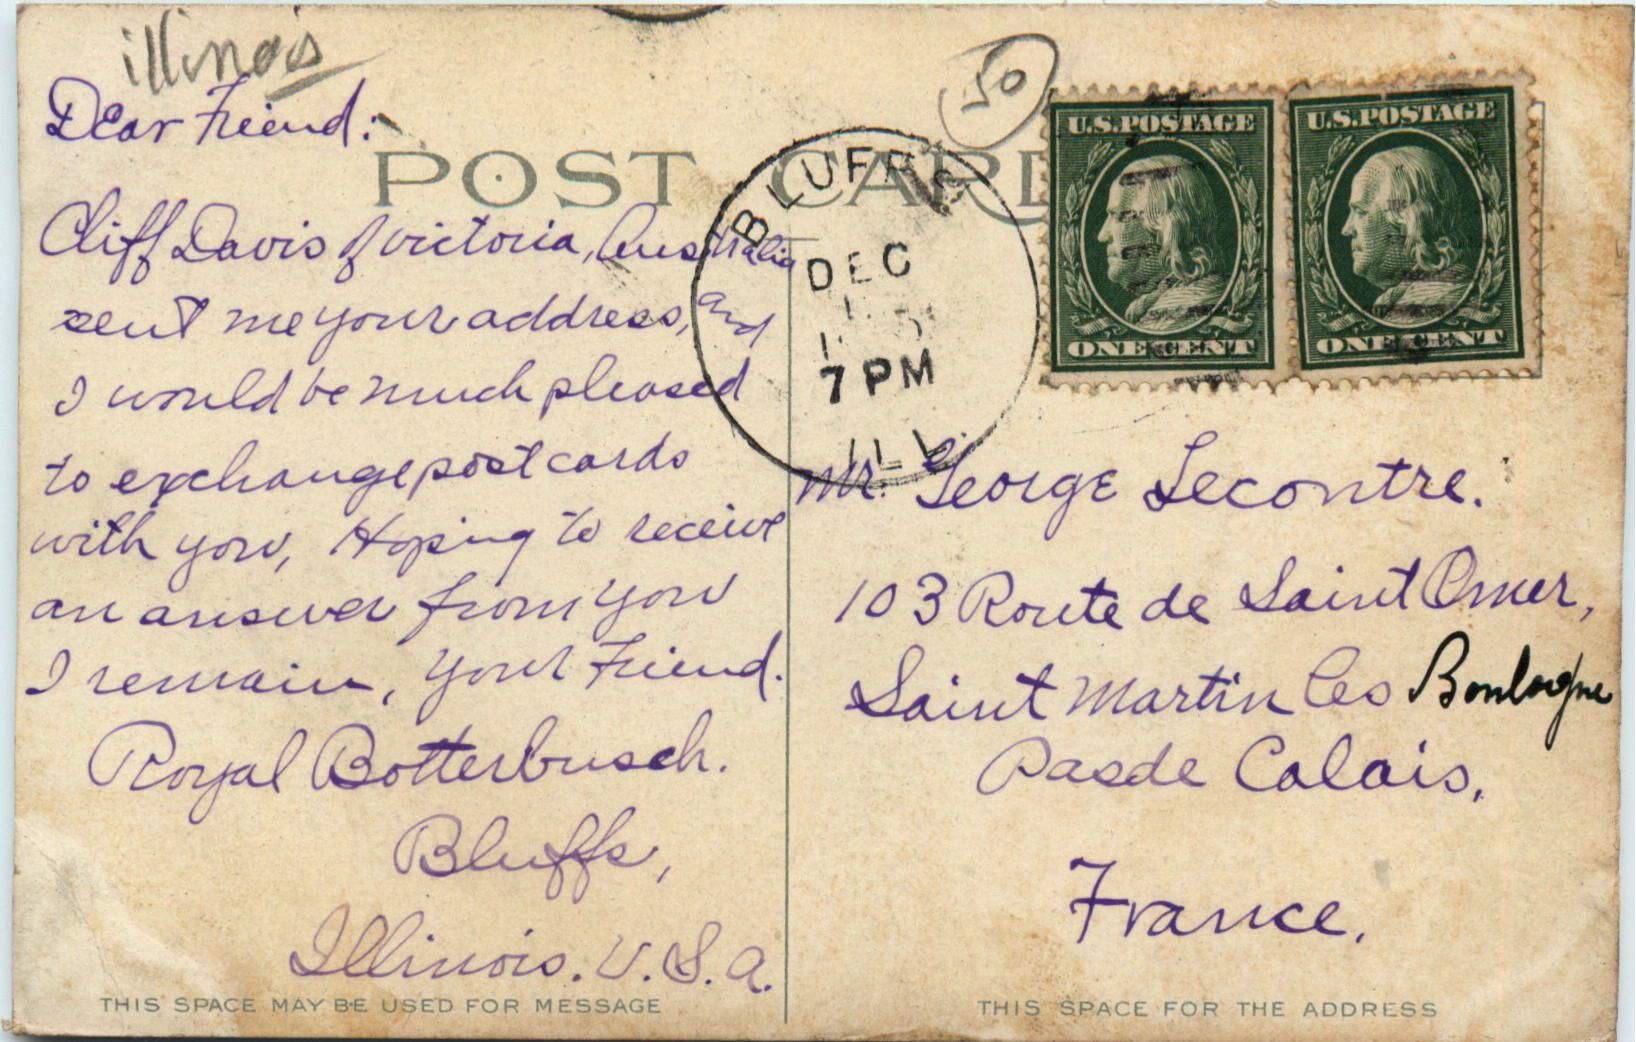 illinois
50
POST CARD
Dear Friend:
Cliff Davis of Victoria, Australia
sent me your address, and
I would be much pleased
to exchange post cards
with you, Hoping to receive
an answer from you
I remain, your Friend.
Royal Botterbusch.
Bluffs,
Illinois. U.S.A.
THIS SPACE MAY BE USED FOR MESSAGE
BLUFFS
DEC
7 PM
ILL.
U.S. POSTAGE
ONE CENT
U.S. POSTAGE
ONE CENT
Mr. George Lecontre.
103 Route de Saint Omer,
Saint Martin les Boulogne
Pas de Calais,
France.
THIS SPACE FOR THE ADDRESS